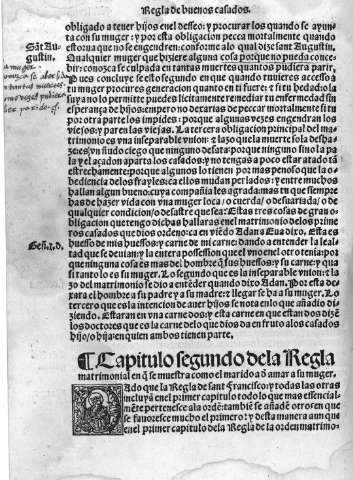 Regla de buenos casados.
obligado a tener hijos en el desseo: y procurar los quando se ayun
ta con su muger: y por esta obligacion pecca mortalmente quando
estorua que no se engendren: conforme alo qual dize sant Augustin,
Sãt Au-
gustin,
Qualquier muger que hiziere alguna cosa porque no pueda conce-
bir: conozca se culpada en tantas muertes quantos pudiera parir,
Pues concluye se esto segundo en que quando tuuieres accesso a
tu muger procures generacion quanto en ti fuere: τ si tu hedad: o la
suya no lo permitte puedes licitamente remediar tu enfermedad sin
esperança de hijos: empero no dexarias de peccar mortalmente si tu
por otra parte los impides: porque algunas vezes engendran los
viejos: y paren las viejas. La tercera obligacion principal del ma-
trimonio es vna inseparable vnion: τ lazo que la muerte sola despa-
ze: es vn ñudo ciego que ninguno desata: porque ninguno fino la pa
la y el açadon aparta los casados: y no tengas a poco estar atado tã
estrechamente: porque algunos lo tienen por mas penoso que la o-
bediencia delos frayles: ca ellos mudan perlados: y entre muchos
hallan alguno bueno cuya compañia les agrada: mas tu que siempre
has de hazer vida con vna muger loca / o cuerda / o desuariada / o de
qualquier condicion / o desastre que sea: Estas tres cosas de gran o-
bligacion que tengo dichas hallaras en el matrimonio delos prime
ros casados que dios ordeno: ca en viẽdo Adan a Eua dixo, Esta es
Geñ.2.d,
huesso de mis huessos: y carne de mi carne: dando a entender la leal-
tad que se deuian: y la entera possession que el vno en el otro tenia: por
que ninguna cosa es mas del hombre q̃ sus huessos: y su carne: y qua
si tanto lo es su muger. Lo segundo que es la inseparable vnion: τ la
zo del matrimonio se dio a entẽder quando dixo Adan, Por esta de-
xara el hombre a su padre y a su madre: y llegar se ha a su muger. Lo
tercero que es la intencion de auer hijos se nota en lo que añadio di-
ziendo. Estaran en vna carne dos: y esta carne en que estan dos dizẽ
los doctores que es la carne delo que dios da en fruto alos casados
hijo / o hija en quien ambos tienen parte,
¶ Capitulo segundo dela Regla
matrimonial en q̃ se muestra como el marido a d̃ amar a su muger,
DAdo que la Regla de sant Francisco: y todas las otras
incluyã en el primer capitulo todo lo que mas essencial-
mente pertenesce ala ordẽ: tambiẽ se añadẽ otros en que
se fauorezce mucho el primero: y desta manera aun que
en el primer capitulo dela Regla de la orden matrimo-